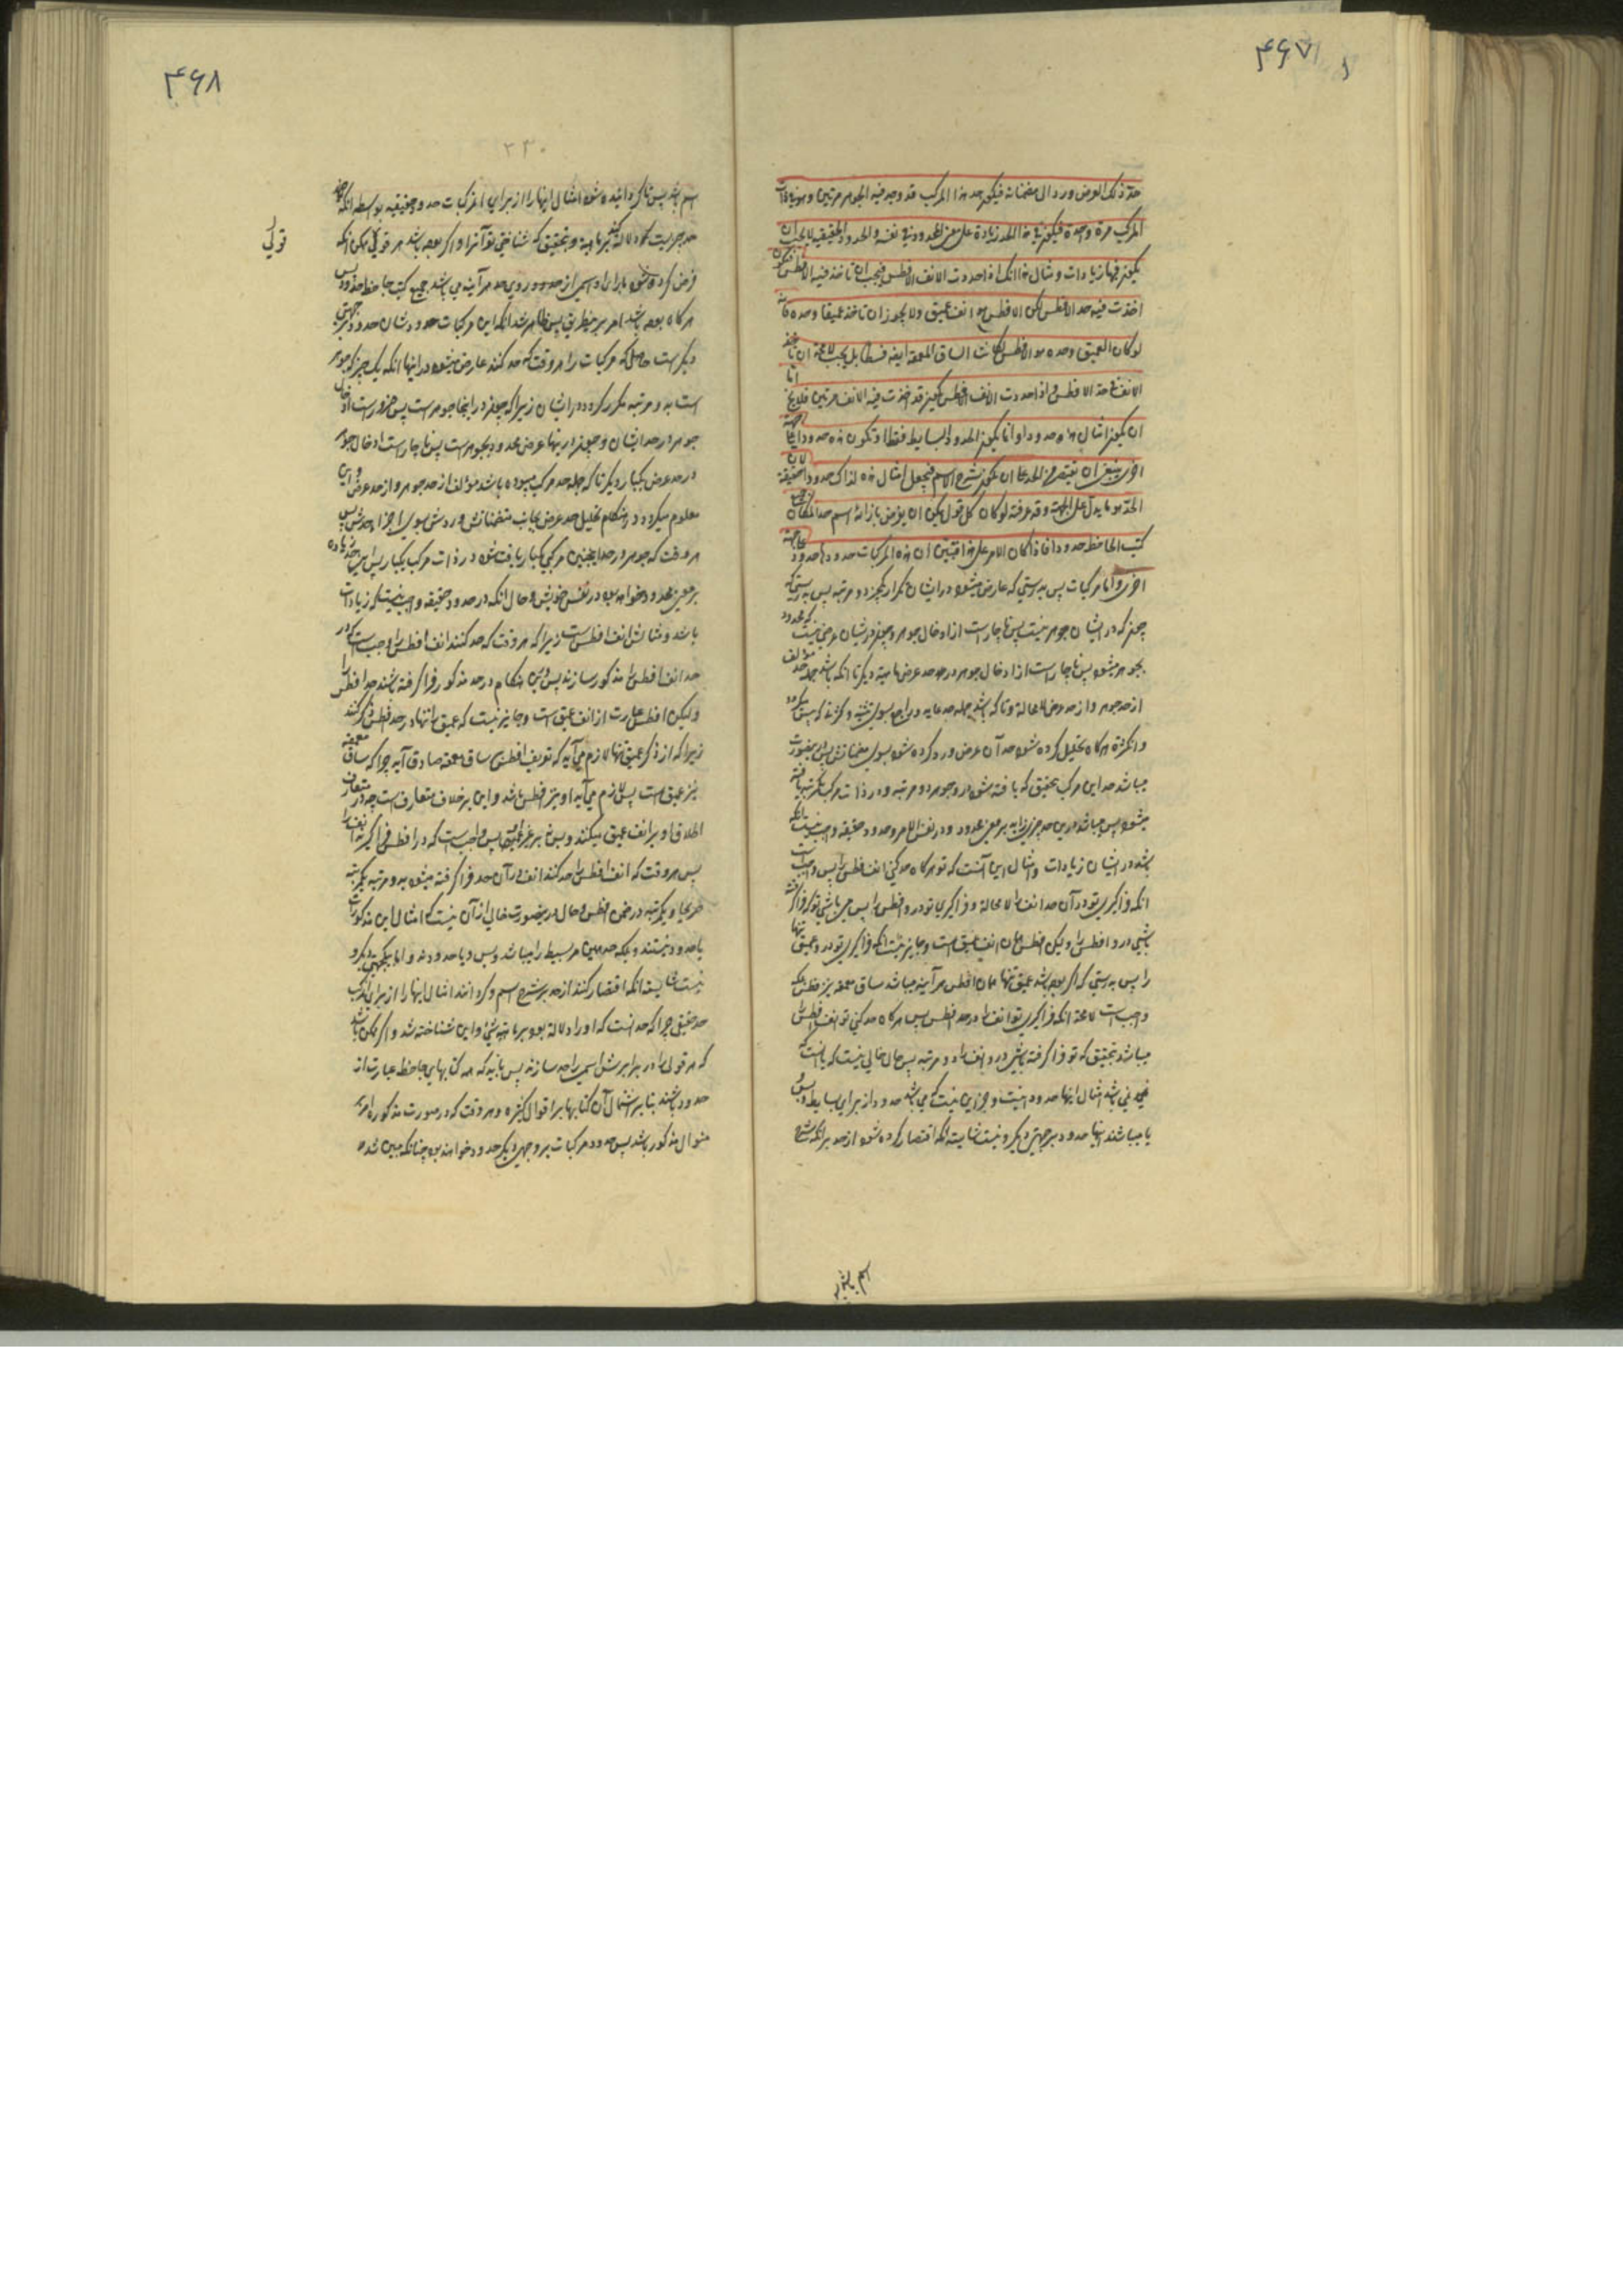 ۴۶۷
حد ذلک العرض ورد الی مضمناته فیکون حد هذا المرکب قد وجد فیه الجوهر مرتین وهو فی ذات
المرکب مرة واحدة فیکون فی هذا الحد زیادة علی معنی المحدود فی نفسه والحدود الحقیقیة لا یجب ان
یکون فیها زیادات ومثال هذا انک اذا حددت الانف الافطس فیجب ان تاخذ فیه الانف فتکون
اخذت فیه حد الافطس لکن الافطس هو انف عمیق ولا یجوز ان تاخذ عمیقا وحده فانه
لو کان العمیق وحده هو الافطس لکانت الساق المعمقة ایضا فسطا بل یجب لا محالة ان تاخذ
الانف فی حد الافطس فاذا حددت الانف الافطس یکون قد اخذت فیه الانف مرتین فلا یخلو اما
ان یکون امثال هذه حدودا وانما یکون الحدود للبسایط فقط او تکون هذه حدودا علی جهة
اخری ینبغی ان یقتصر من الحد علی ان یکون شرح الاسم فیجعل امثال هذه لذلک حدودا حقیقیة لان
الحد هو ما یدل علی الماهیة وقد عرفته لو کان کل قول یمکن ان یفرض بازائه اسم حدا لکان جمیع
کتب الجاحظ حدودا فاذا کان الامر علی هذا فتبین ان هذه المرکبات حدودها حدود علی جهة
اخری واما مرکبات پس بدرستی که عارض میشود در ایشان تکرار یک چیز دو مرتبه پس بدرستی که
چیز که در ایشان جوهر نیست پس ناچار است از ادخال جوهر و چیز در ایشان عرض نیست که محدود
بجوهر میشود پس ناچار است از ادخال جوهر در حد عرض ماهیة دیگر تا انکه باشد جمله حد مؤلف
از حد جوهر و از حد عرض لا محالة و تا که باشد
وانگاه تحلیل کرده شود حد آن عرض و رد کرده شود بسوی مضمناتش پس در اینصورت
میباشد حد این مرکب بتحقیق که یافته شود در او جوهر دو مرتبه و در ذات مرکب یکمرتبه یافته
میشود پس میباشد در این حد چیزی زاید بر معنی محدود در نفس الامر و حدود حقیقیه واجب نیست انکه
باشد در ایشان زیادات و مثال این آنست که تو هر کاه حد کنی انف افطس را پس واجبست
انکه فراگیری تو در آن حد انف را لا محالة و فراگیری تو در او افطس را پس میباشی تو که فراگرفته
باشی در او افطس را ولیکن افطس همان انف عمیق است و جایز نیست انکه فراگیری تو در او عمیق تنها
را پس بدرستی که اگر بوده باشد عمیق تنها همان افطس هر آینه میباشد ساق معمقه نیز افطس بلکه
واجب است لا محالة انکه فراگیری تو انف را در حد افطس پس هر کاه حد کنی تو انف افطس را
میباشد بتحقیق که تو فراگرفته باشی در او انف را دو مرتبه پس حال خالی نیست که یا انست که
نمی باشد امثال اینها حدود و جز این نیست که می باشد حدود از برای بسایط و بس
یا میباشند اینها حدود بر جهتی دیگر و نیست شایسته انکه اقتصار کرده شود از حد بر انکه شرح
اسم باشد
۴۶۸
۲۳۰
اسم باشد پس تا گردانیده شود امثال اینها را از برای مرکبات حدود حقیقیه بواسطه انکه حد
حد چیزیست که دلالت کند بر ماهیة و بتحقیق که شناختی تو آنرا و اگر بوده باشد هر قولی که ممکن انکه
قولی
فرض کرده شود بازای او اسمی از حد هر آینه می باشد جمیع کتب جاحظ حدود پس
هر کاه بوده باشد امر بر این طریق پس ظاهر شد انکه این مرکبات حدودشان حدود بر جهتی
دیگر است حاصل که مرکبات را هر وقت که حد کنند عارض میشود در اینها انکه یک چیز که جوهر
است به دو مرتبه مکرر گردد در ایشان زیرا که چیز در اینجا جوهر است پس ضرور است ادخال
جوهر در حد ایشان و چیز در اینها عرض محدود بجوهر است پس ناچار است ادخال جوهر
در حد عرض یکبار دیگر تا که جمله حد مرکب بوده باشد مؤلف از حد جوهر و از حد عرض و این
معلوم میگردد در هنگام تحلیل حد عرض بجانب متضمناتش و ردش بسوی اجزاء حدش پس
هر وقت که جوهر در حد اینچنین مرکبی یکبار یافت شود در ذات مرکب یکبار پس این حد زیاده
بر معنی محدود خواهد بود در نفس خویش و حال انکه در حدود حقیقیه واجب نیست که زیادات
باشد و مثالش انف افطس است زیرا که هر وقت که حد کنند انف افطس را واجب است که در
حد انف افطس را مذکور سازند پس در این هنگام در حد مذکور فرا گرفته باشند حد افطس را
ولیکن افطس عبارت از انف عمیق است و جایز نیست که عمیق را تنها در حد افطس ذکر کنند
زیرا که از ذکر عمیق تنها لازم می آید که تعریف افطس بساق معمقه صادق آید چرا که ساق معمقه
نیز عمیق است پس لازم می آید او نیز افطس باشد و این بر خلاف متعارف است چه در متعارف
اطلاق او بر انف عمیق میکنند و بس نه بر غیر او پس واجب است که در افطس فراگیرند انف را
پس هر وقت که انف افطس را حد کنند انف در آن حد فرا گرفته میشود به دو مرتبه یکمرتبه
صریحا و یکمرتبه در ضمن افطس و حال در اینصورت خالی از آن نیست که امثال این مذکورات
یا حدود نیستند و بلکه حد همین مر بسیط را میباشد و بس و یا حدودند و اما بیکجهتی دیگر و
نیست شایسته انکه اقتصار کنند از حد بر شرح اسم و گردانند امثال اینها را از برای مرکب
حد حقیقی چرا که حد انست که او را دلالة بوده بر ماهیة شیء و این شناخته شد و اگر ممکن باشد
که هر قولی را در برابرش اسمی را حد سازند پس باید که همه کتابهای جاحظ عبارت از
حدود باشند بنا بر اشتمال آن کتابها بر اقوال کثیره و هر وقت که در صورت مذکوره امر بر
منوال مذکور باشد پس حدود مرکبات بر وجهی دیگر حدود خواهند بود چنانکه مبین شده